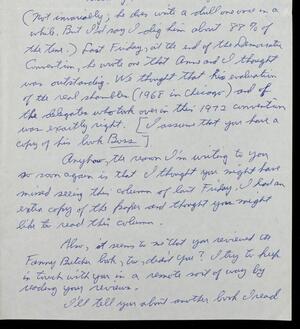 (Not invariably; he does write a dull one once in a
while. But I'd say I dig him about 88% of
the time.) Last Friday, at the end of the Democratic
Convention, he wrote one that Anna and I thought
was outstanding. We thought that his evaluation
of the real shambles (1968 in Chicago) and of
the delegates who took over this 1972 convention
was exactly right. [I assume that you have a
copy of his book Boss]
Anyhow, the reason I'm writing to you
so soon again is that I thought you might have
missed seeing this column of last Friday. I had an
extra copy of the paper and thought you might
like to read this column.
Also, it seems to me that you reviewed
Fanny Butcher book, too, didn't you? I try to keep
in touch with you in a remote sort of way by
reading your reviews.
I'll tell you about another book I read